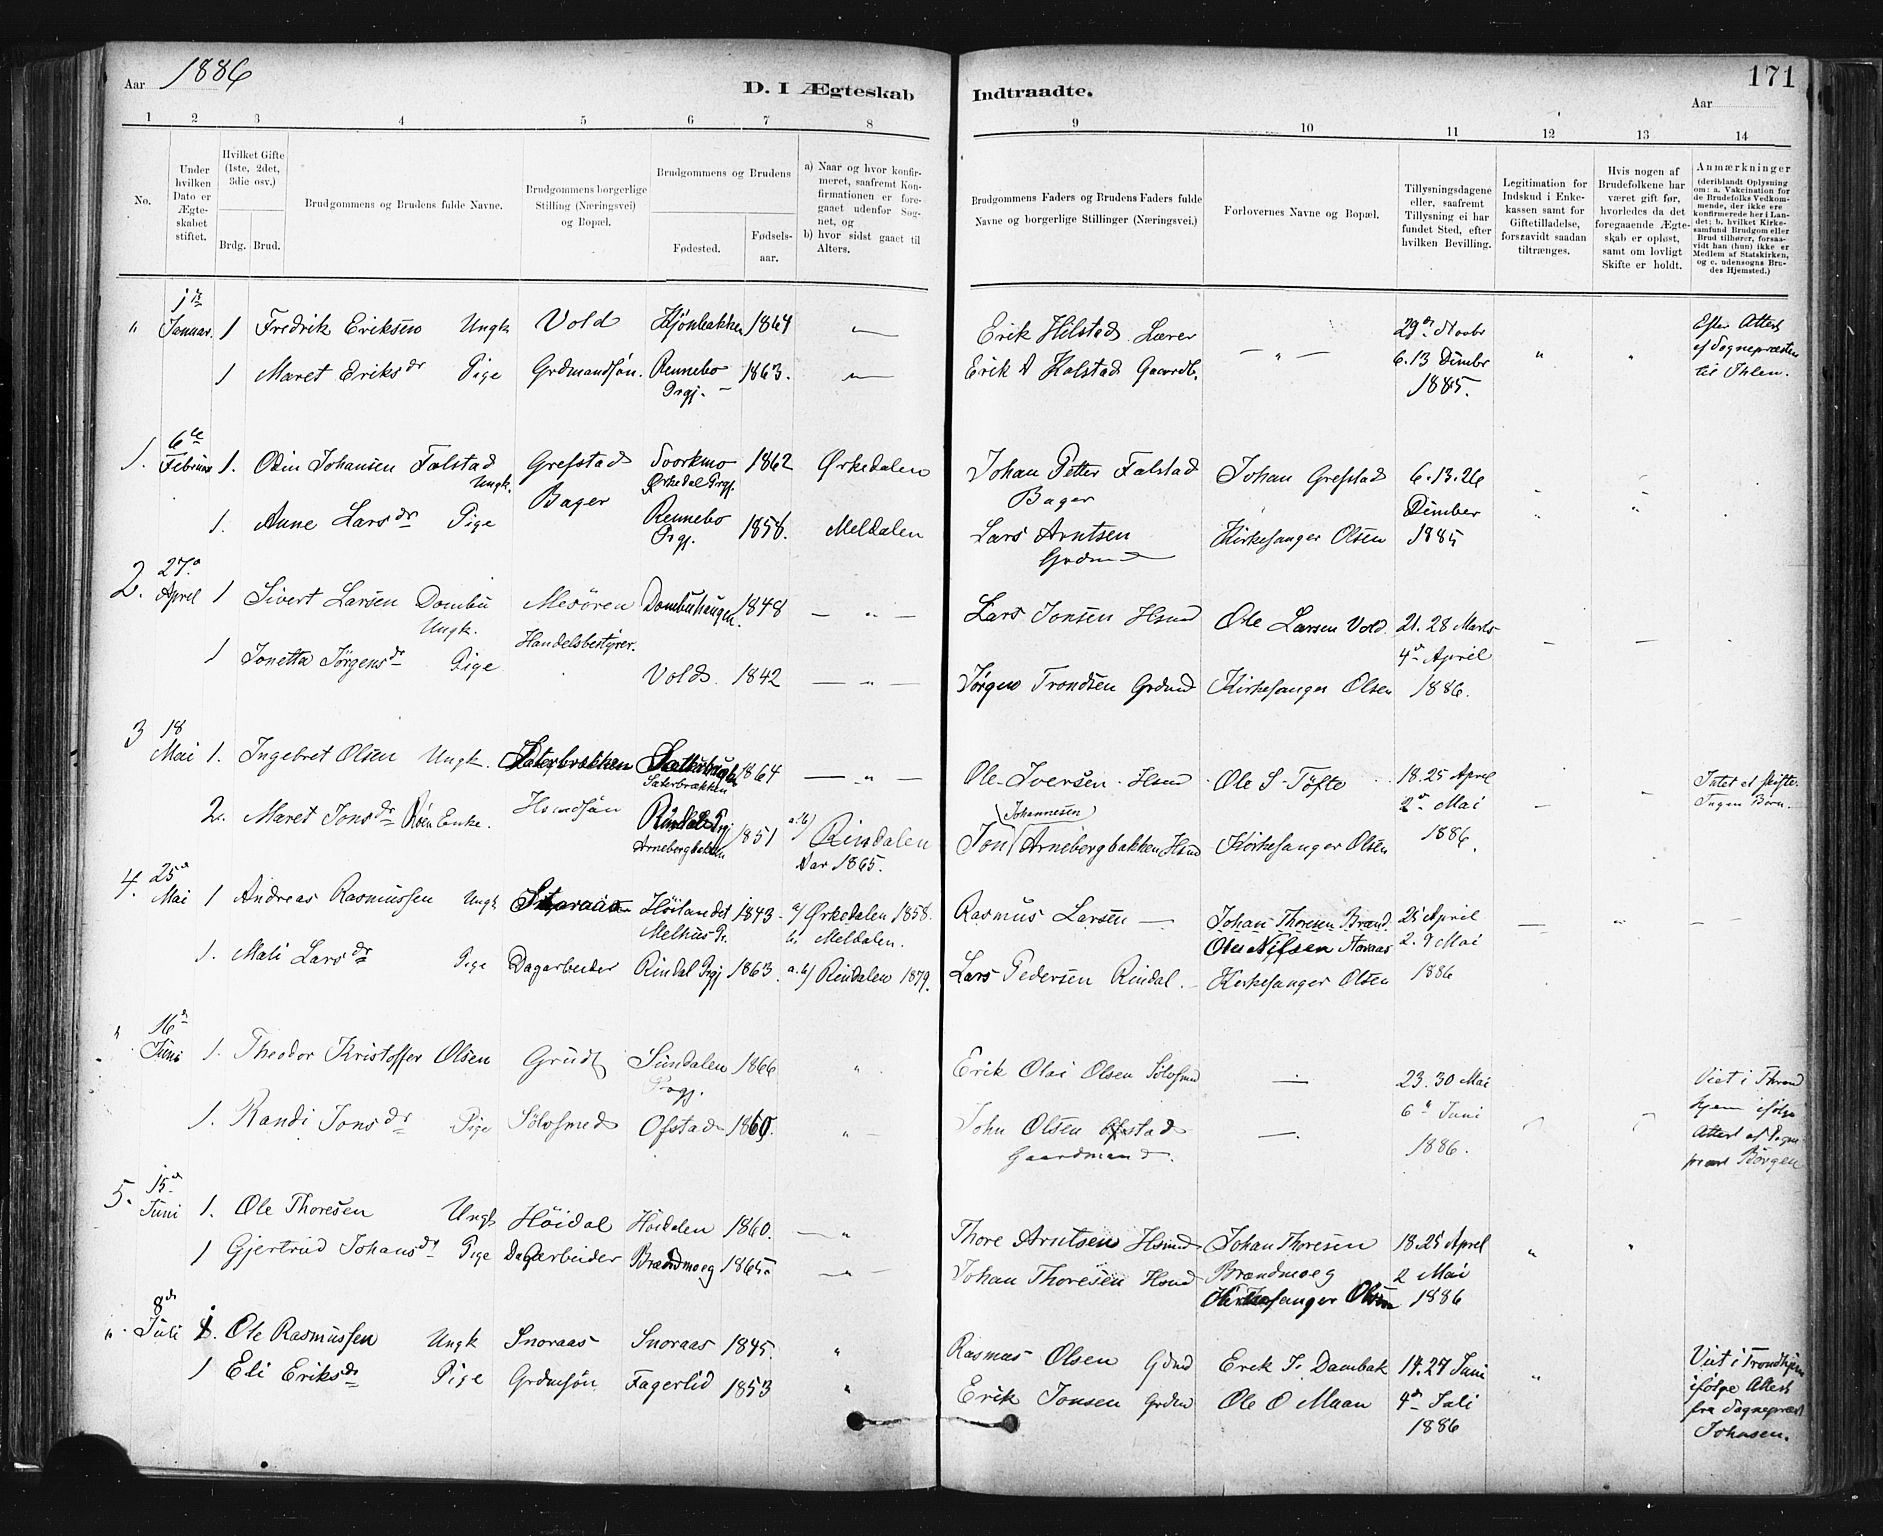 Aar 1886
D. I Ægteskab Indtraadte.
171
Aar
1 2 3 4 5 6 7 8 9 10 11 12 13 14
No.
Under hvilken Dato er Ægteskabet stiftet.
Hvilket Gifte (1ste, 2det, 3die osv.)
Brdg. Brud.
Brudgommens og Brudens fulde Navne.
Brudgommens borgerlige Stilling (Næringsvei) og Bopæl.
Brudgommens og Brudens
Fødested. Fødselsaar.
a) Naar og hvor konfirmeret, saafremt Konfirmationen er foregaaet udenfor Sognet, og
b) hvor sidst gaaet til Alters.
Brudgommens Faders og Brudens Faders fulde Navne og borgerlige Stillinger (Næringsvei.)
Forlovernes Navne og Bopæl.
Tillysningsdagene eller, saafremt Tillysning ei har fundet Sted, efter hvilken Bevilling.
Legitimation for Indskud i Enkekassen samt for Giftetilladelse, forsaavidt saadan tiltrænges.
Hvis nogen af Brudefolkene har været gift før, hvorledes da det foregaaende Ægteskab er opløst, samt om lovligt Skifte er holdt.
Anmærkninger (deriblandt Oplysning om: a. Vakcination for de Brudefolks Vedkommende, der ikke ere konfirmerede her i Landet; b. hvilket Kirkesamfund Brudgom eller Brud tilhører, forsaavidt han (hun) ikke er Medlem af Statskirken, og c. udensogns Brudes Hjemsted.)
" 1ste Januar. 1 Fredrik Eriksen Ungk Vold 1864 — Erik Hilstad Lærer — " — 29de Novbr " " Efter Attest
1 Maret Eriksdr Pige Grdmandsøn. Rennebo Prgj. — 1863. — Erik Halstad Gaardb. 6. 13 Dcmbr 1885. af Sognepræsten til Ihlen.
1. 6te Februar 1. Odin Johansen Falstad Ungk. Grefstad Bager Svorkmo Ørkedal Prgj. 1862 Ørkedalen Johan Petter Falstad Bager Johan Grefstad 6. 13. 26
1. Anne Larsdr Pige Rennebo Prgj. 1858. Meldalen Lars Arntsen Grdmd Kirkesanger Olsen Dcmber 1885
2. 27. April 1 Sivert Larsen Dombu Ungk. Mesøren Dombuhaugen. 1848 — " — Lars Jonsen Hsmd Ole Larsen Vold. 21. 28 Marts
1 Jonetta Jørgensdr Pige Handelsbestyrer. Vold. 1842 — " — Jørgen Trondsen Grdmd Kirkesanger Olsen 4de April 1886.
3 18 Mai 1. Ingebret Olsen Ungk. Sæterbrækken Sæterbrækken 1864 — " — Ole Iversen Hsmd Ole S. Tøfte 18. 25 April Intet at skifte.
2. Maret Jonsdr Røen Enke. Hsmdsøn Rindal Prgj Arnebergbakken 1851 a.b) Rindalen Var 1865. Jon (Johannesen) Arnebergbakken Hsmd Kirkesanger Olsen 2de Mai 1886. Ingen Børn.
4. 25de Mai 1 Andreas Rasmussen Ungk Høilandet Melhus Pr. 1843 a) Ørkedalen 1858. b. Meldalen. Rasmus Larsen — Johan Thoresen Brænd. Ole Nilsen 25 April
1. Mali Larsdr Pige Dagarbeider Rindal Prgj 1863. a.b) Rindalen 1879. Lars Pedersen Rindal. — Kirkesanger Olsen 2. 9 Mai 1886
" 16de Juni 1. Theodor Kristoffer Olsen Grudt Sundalen Prgj. 1866 " Erik Olai Olsen Sølvsmd — 23. 30 Mai Viet i Thrond
1. Randi Jonsdr Pige Sølvsmed Ofstad 1860. " — John Olsen Ofstad Gaardmand. —. 6te Juni 1886. hjem ifølge Attest af Sogne præst Børgen
5. 15de Juni 1. Ole Thoresen Ungk Høidal Høidalen 1860. — " Thore Arntsen Hsmd Johan Thoresen 18. 25 April " "
1 Gjertrud Johansdr Pige Dagarbeider Brændmoeg 1865. — " — Johan Thoresen Hsmd Brændmoeg Kirkesanger Olsen 2 Mai 1886
" 8de Juli 1. Ole Rasmussen Ungk Snoraas Snoraas 1845. " Rasmus Olsen Grdmd Erik J. Dambak 14. 27 Juni " Viet i Trondhjem
1 Eli Eriksdr Pige Grdmsøn Fagerlid 1853 " Erik Jonsen Grdmd Ole O Maan 4de Juli 1886 ifølge Attest fra Sognepræst Johnsen.